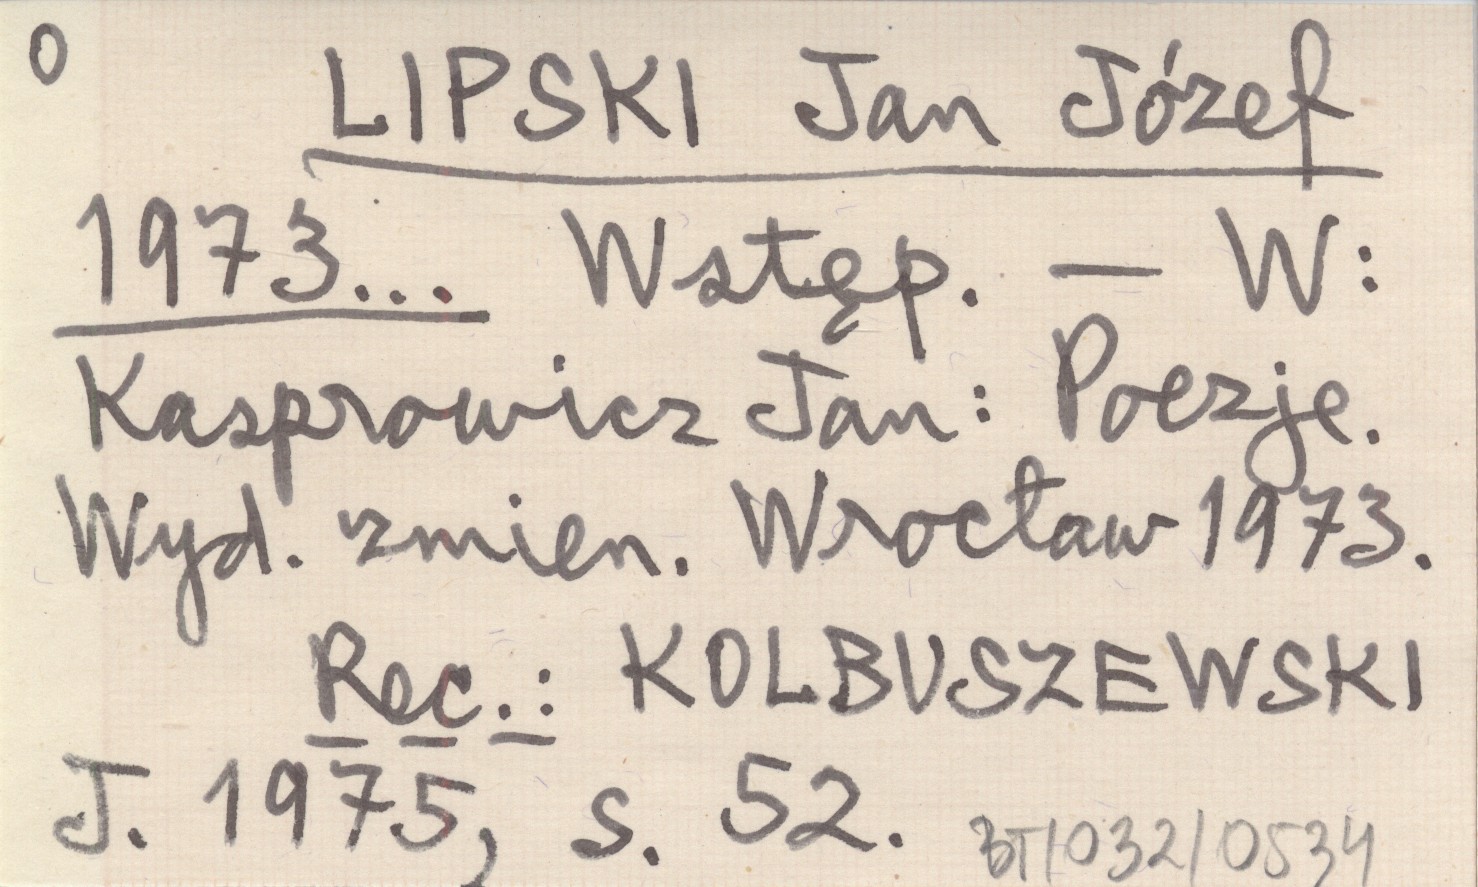 0
LIPSKI Jan Józef
1973... Wstęp. — W:
Kasprowicz Jan: Poezje.
Wyd. zmien. Wrocław 1973.
Rec.: KOLBUSZEWSKI
J. 1975, s. 52.
BT/032/0534